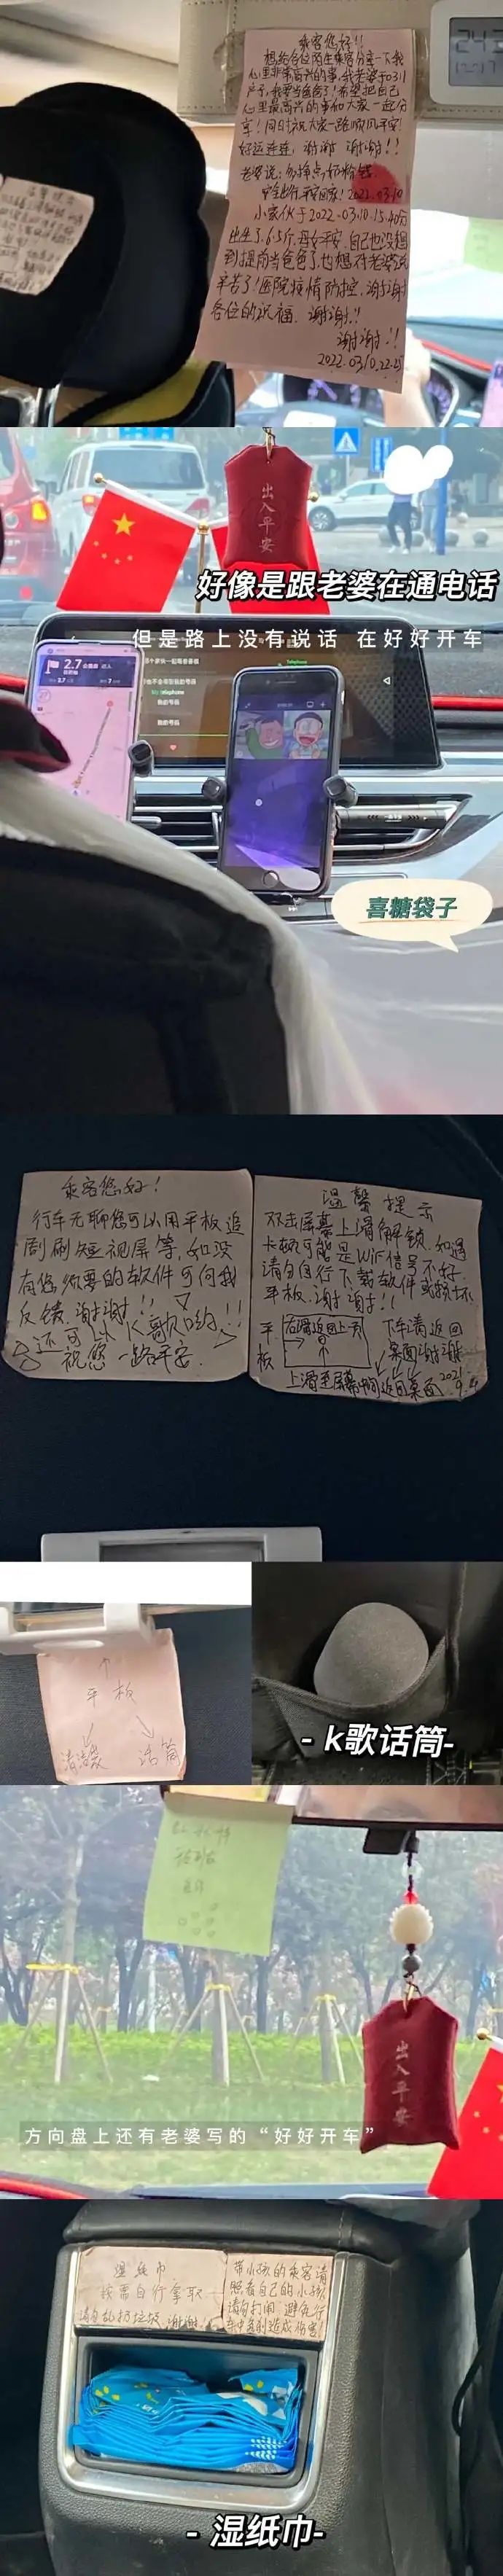 乘客您好!!
想给各位陌生乘客分享一下我
心里非常高兴的事,我老婆于0311
产子,我要当爸爸了!希望把自己
心里最高兴的事和大家一起分
享!同时祝大家一路顺风平安!
好运连连,谢谢 谢谢!!
老婆说:多挣点奶粉钱
平安回家!2022.03.10
小家伙于2022.03.10.15.40分
出生了,6.5斤,母子平安,自己也没想
到提前当爸爸了也想对老婆说
辛苦了!医院疫情防控,谢谢
各位的祝福,谢谢!!
谢谢!!
2022.03.10.22.25
出入平安
好像是跟老婆在通电话
但是路上没有说话 在好好开车
2.7
喜糖袋子
乘客您好!
行车无聊您可以用平板追
剧刷短视屏等,如没
有您须要的软件可向我
反馈,谢谢!!
还可以K歌哟!!
祝您一路平安.
温馨提示
双击屏幕上滑解锁,如遇
卡顿可能是WiFi信号不好,
请勿自行下载软件或损坏
平板,谢谢!!
平板
右滑返回上一页
下车请返回
桌面谢谢
上滑至屏幕中间返回桌面
2021
9.4
平板
清洁袋
话筒
- k歌话筒-
出入平安
方向盘上还有老婆写的“好好开车”
湿纸巾
按需自行拿取
请勿乱扔垃圾,谢谢!
带小孩的乘客请
照看自己的小孩
请勿打闹 避免行
车中急刹造成伤害!
- 湿纸巾-